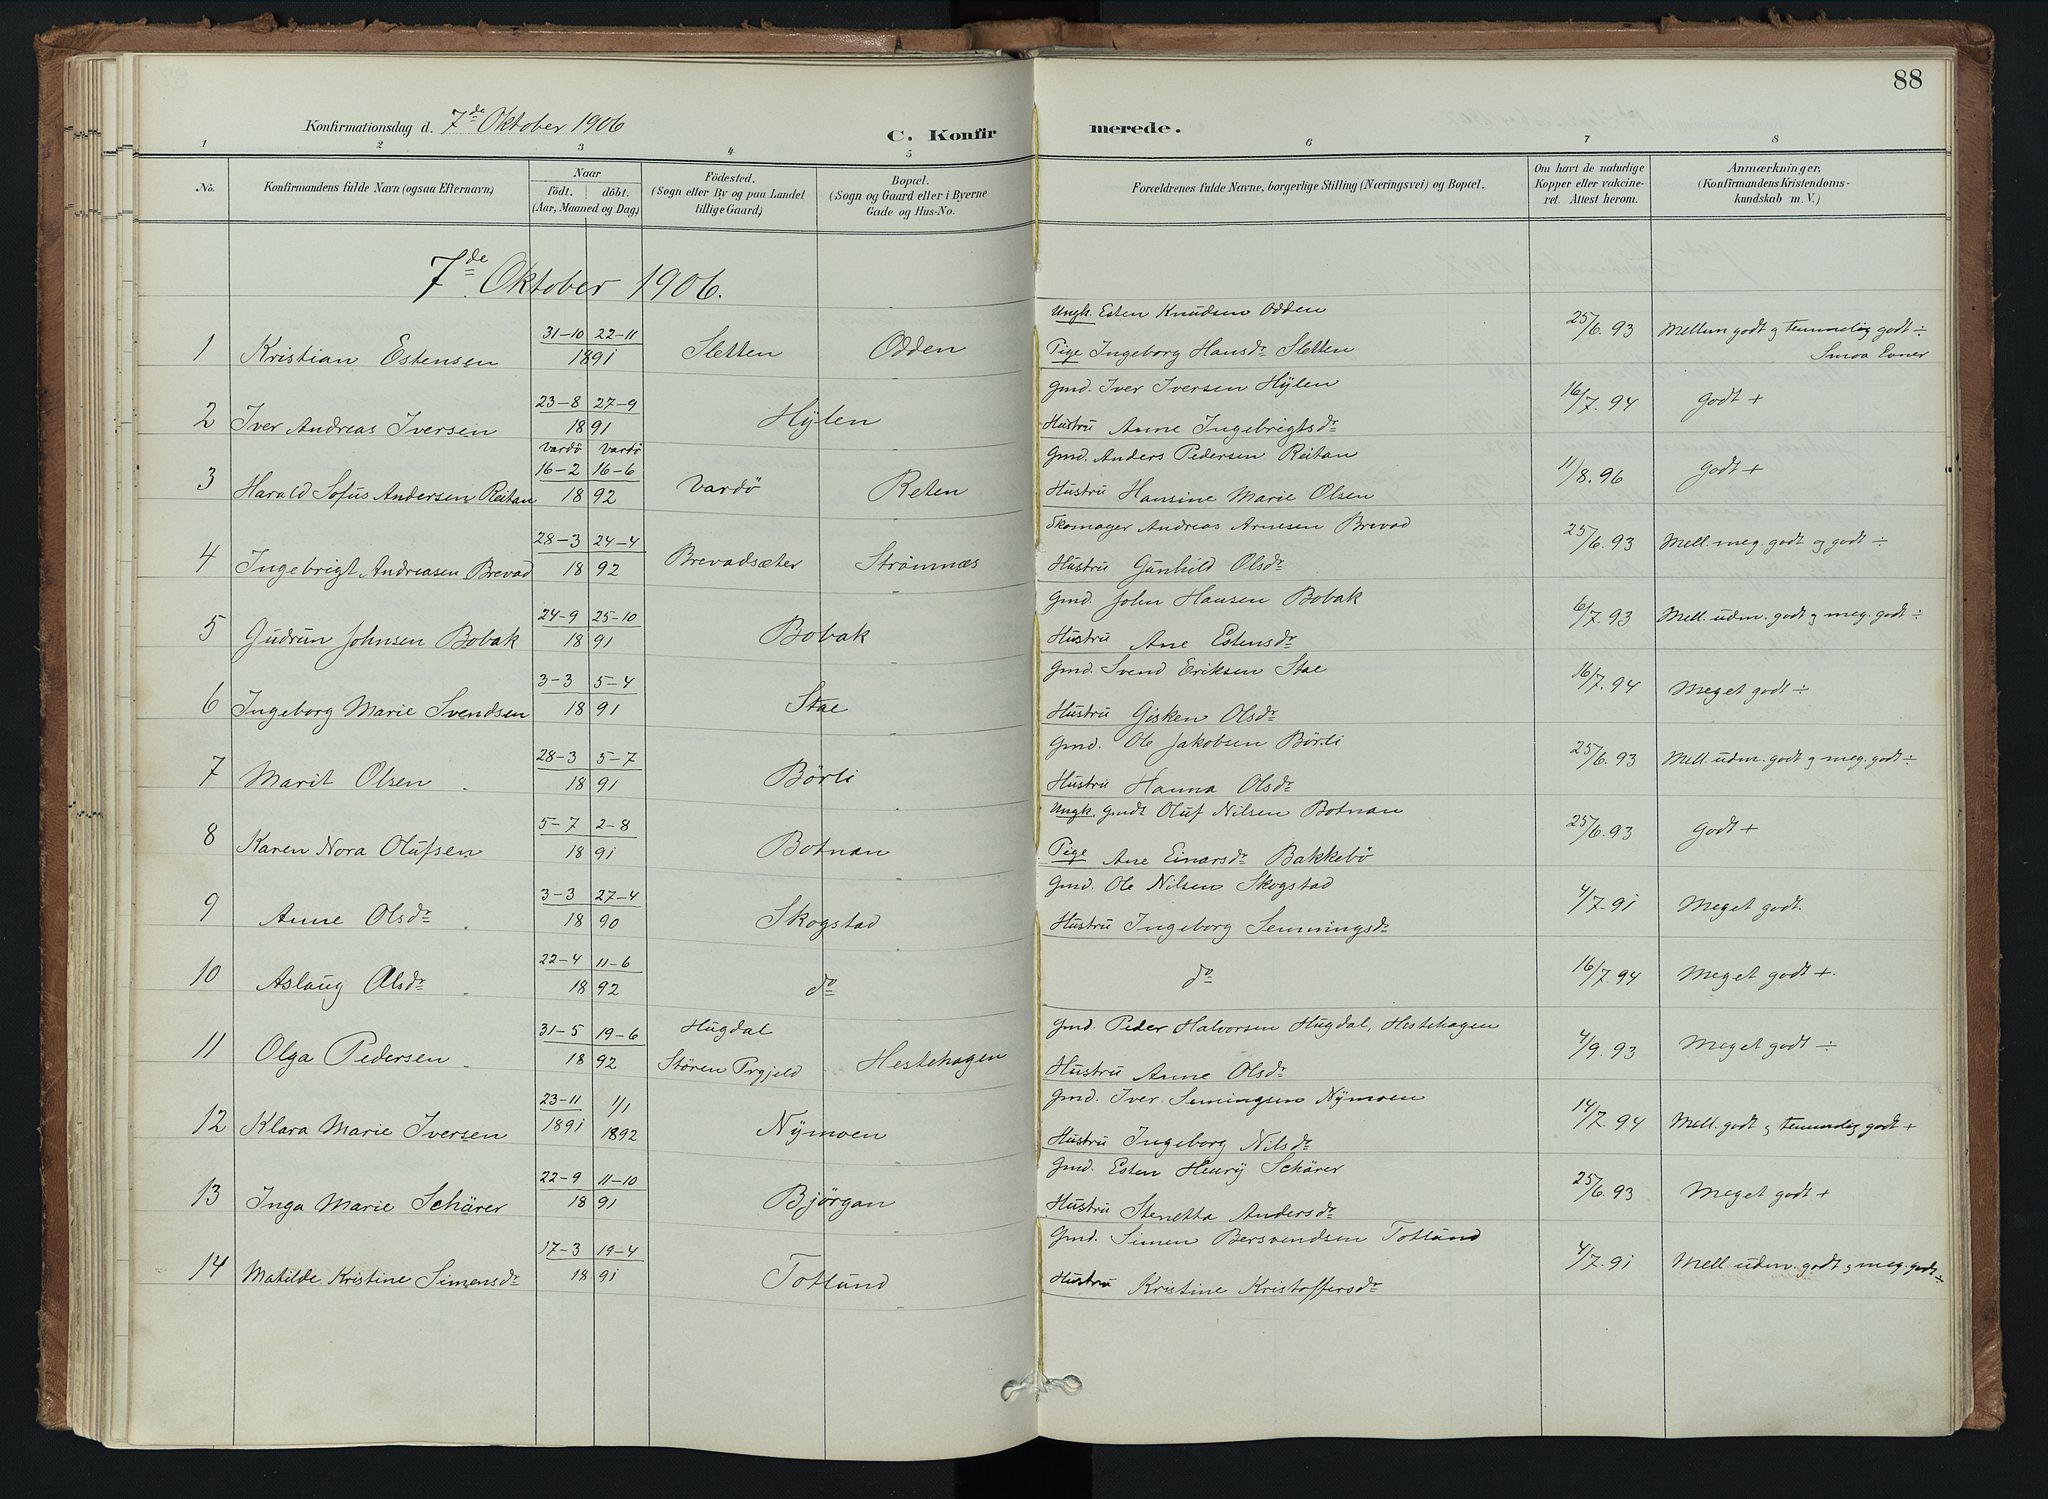 88
Konfirmationsdag d. 7de Oktober 1906
C. Konfirmerede.
1 2 3 4 5 6 7 8
No. Konfirmandens fulde Navn (ogsaa Efternavn) Naar födt. döbt. (Aar, Maaned og Dag.) Födested. (Sogn eller By og paa Landet tillige Gaard.) Bopæl. (Sogn og Gaard eller i Byerne Gade og Hus-No. Forældrenes fulde Navne, borgerlige Stilling (Næringsvei) og Bopæl. Om havt de naturlige Kopper eller vakcineret. Attest herom. Anmærkninger. (Konfirmandens Kristendomskundskab m. V.)
7de Oktober 1906.
1 Kristian Estensen 31-10 22-11 1891 Sletten Odden Ungk. Esten Knudsen Odden 25/6.93 Mellem godt og temmelig godt ÷
Pige Ingeborg Hansdr Sletten Smaa Evner
2 Iver Andreas Iversen 23-8 27-9 1891 Hÿlen Gmd. Iver Iversen Hÿlen 16/7.94 Godt +
Hustru Anne Ingebrigtsdr
3 Harald Sofus Andersen Reitan Vardö Vardö 16-2 16-6 1892 Vardö Reten Gmd. Anders Pedersen Reitan 11/8.96 Godt +
Hustru Hansine Marie Olsen
4 Ingebrigt Andreasen Brevad 28-3 24-4 1892 Brevadsæter Strömnæs Skomager Andreas Arnesen Brevad 25/6.93 Mell. meg. godt og godt ÷
Hustru Gunhild Olsdr
5 Gudrun Johnsen Bobak 24-9 25-10 1891 Bobak Gmd. John Hansen Bobak 6/7.93 Mell. udm. godt og meg. godt ÷
Hustru Ane Estensdr
6 Ingeborg Marie Svendsen 3-3 5-4 1891 Stae Gmd. Svend Eriksen Stae 16/7.94 Meget godt ÷
Hustru Gisken Olsdr
7 Marit Olsen 28-3 5-7 1891 Börli Gmd. Ole Jakobsen Börli 25/6.93 Mell. udm. godt og meg. godt ÷
Hustru Hanna Olsdr
8 Karen Nora Olufsen 5-7 2-8 1891 Botnan Ungk. Gmdt Oluf Nilsen Botnan 25/6.93 Godt +
Pige Ane Einarsdr Bakkebö
9 Anne Olsdr 3-3 27-4 1890 Skogstad Gmd. Ole Nilsen Skogstad 4/7.91 Meget godt.
Hustru Ingeborg Semmingsdr
10 Aslaug Olsdr 22-4 11-6 1892 do do 16/7.94 Meget godt +
11 Olga Pedersen 31-5 19-6 1892 Hugdal Stören Prgjeld Hestehagen Gmd. Peder Halvorsen Hugdal, Hestehagen 4/9.93 Meget godt ÷
Hustru Anne Olsdr
12 Klara Marie Iversen 23-11 1891 1/1 1892 Nÿmoen Gmd. Iver Semingsen Nÿmoen 14/7.94 Mell. godt og temmelig godt +
Hustru Ingeborg Nilsdr
13 Inga Marie Schärer 22-9 11-10 1891 Bjørgan Gmd. Esten Henrÿ Schärer 25/6.93 Meget godt +
Hustru Stenetta Andersdr
14 Matilde Kristine Simensdr 17-3 19-4 1891 Totlund Gmd. Simen Bersvendsen Totlund 4/7.91 Mell. udm. godt og meg. godt ÷
Hustru Kristine Kristoffersdr